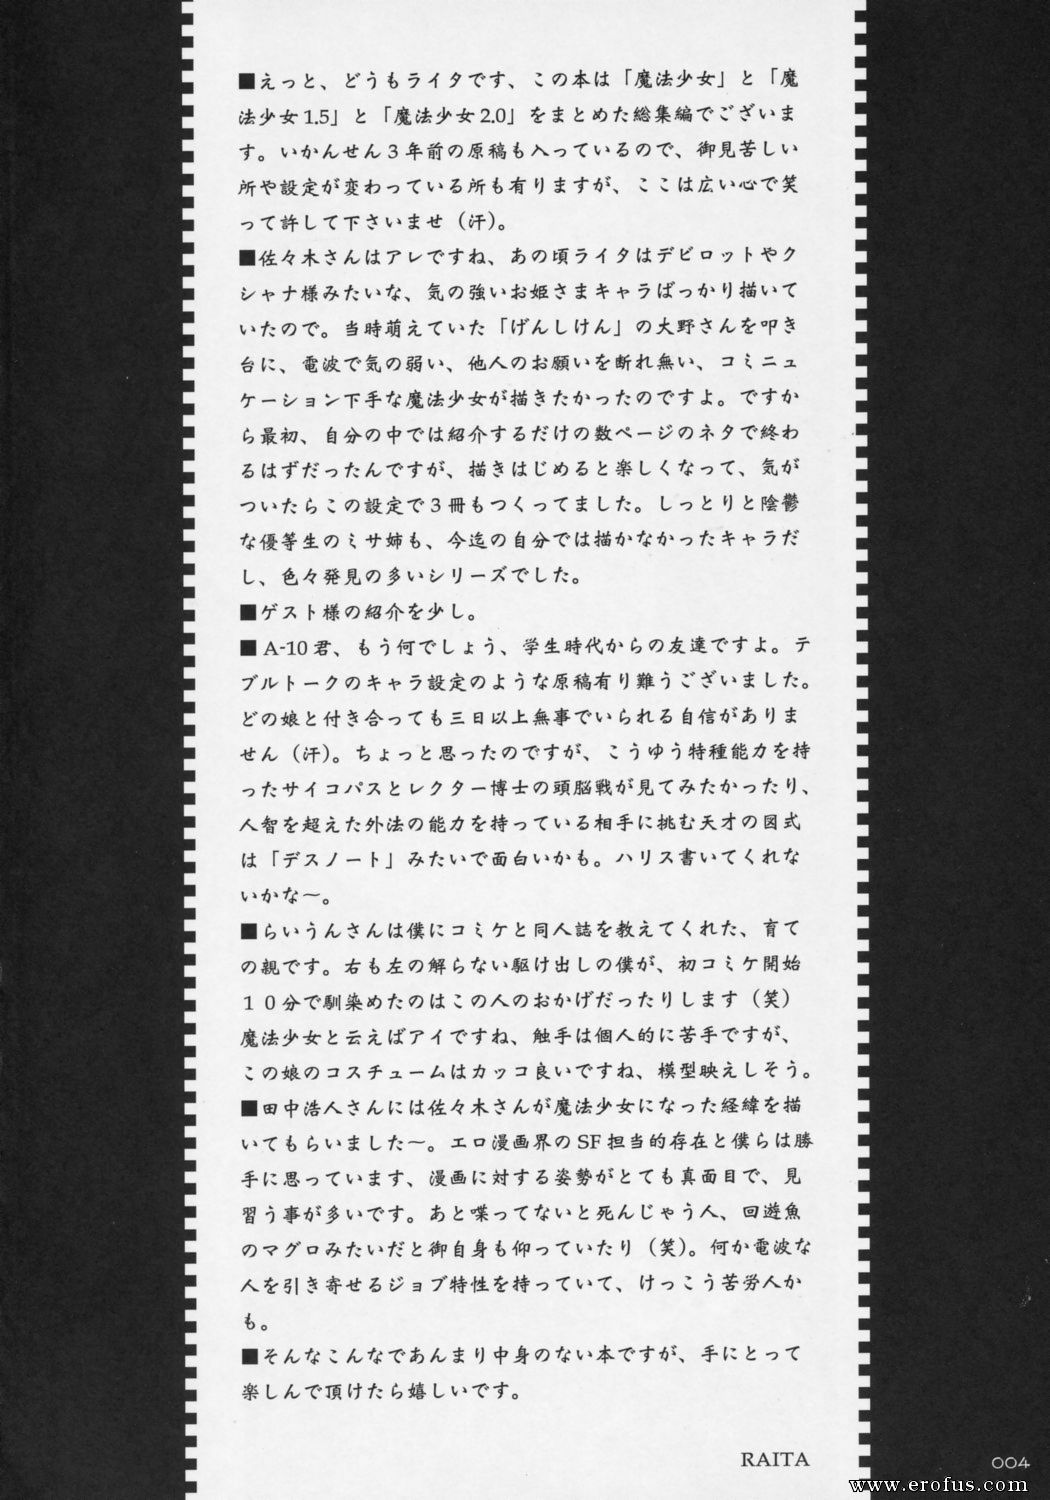 ■えっと、どうもライタです、この本は「魔法少女」と「魔
法少女1.5」と「魔法少女2.0」をまとめた総集編でございま
す。いかんせん３年前の原稿も入っているので、御見苦しい
所や設定が変わっている所も有りますが、ここは広い心で笑
って許して下さいませ（汗）。
■佐々木さんはアレですね、あの頃ライタはデビロットやク
シャナ様みたいな、気の強いお姫さまキャラばっかり描いて
いたので。当時萌えていた「げんしけん」の大野さんを叩き
台に、電波で気の弱い、他人のお願いを断れ無い、コミニュ
ケーション下手な魔法少女が描きたかったのですよ。ですか
ら最初、自分の中では紹介するだけの数ページのネタで終わ
るはずだったんですが、描きはじめると楽しくなって、気が
ついたらこの設定で３冊もつくってました。しっとりと陰鬱
な優等生のミサ姉も、今迄の自分では描かなかったキャラだ
し、色々発見の多いシリーズでした。
■ゲスト様の紹介を少し。
■A-10君、もう何でしょう、学生時代からの友達ですよ。テ
ブルトークのキャラ設定のような原稿有り難うございました。
どの娘と付き合っても三日以上無事でいられる自信がありま
せん（汗）。ちょっと思ったのですが、こうゆう特種能力を持
ったサイコパスとレクター博士の頭脳戦が見てみたかったり、
人智を超えた外法の能力を持っている相手に挑む天才の図式
は「デスノート」みたいで面白いかも。ハリス書いてくれな
いかな〜。
■らいうんさんは僕にコミケと同人誌を教えてくれた、育て
の親です。右も左の解らない駆け出しの僕が、初コミケ開始
１０分で馴染めたのはこの人のおかげだったりします（笑）
魔法少女と云えばアイですね、触手は個人的に苦手ですが、
この娘のコスチュームはカッコ良いですね、模型映えしそう。
■田中浩人さんには佐々木さんが魔法少女になった経緯を描
いてもらいました〜。エロ漫画界のSF担当的存在と僕らは勝
手に思っています、漫画に対する姿勢がとても真面目で、見
習う事が多いです。あと喋ってないと死んじゃう人、回遊魚
のマグロみたいだと御自身も仰っていたり（笑）。何か電波な
人を引き寄せるジョブ特性を持っていて、けっこう苦労人か
も。
■そんなこんなであんまり中身のない本ですが、手にとって
楽しんで頂けたら嬉しいです。
RAITA
004
www.erofus.com